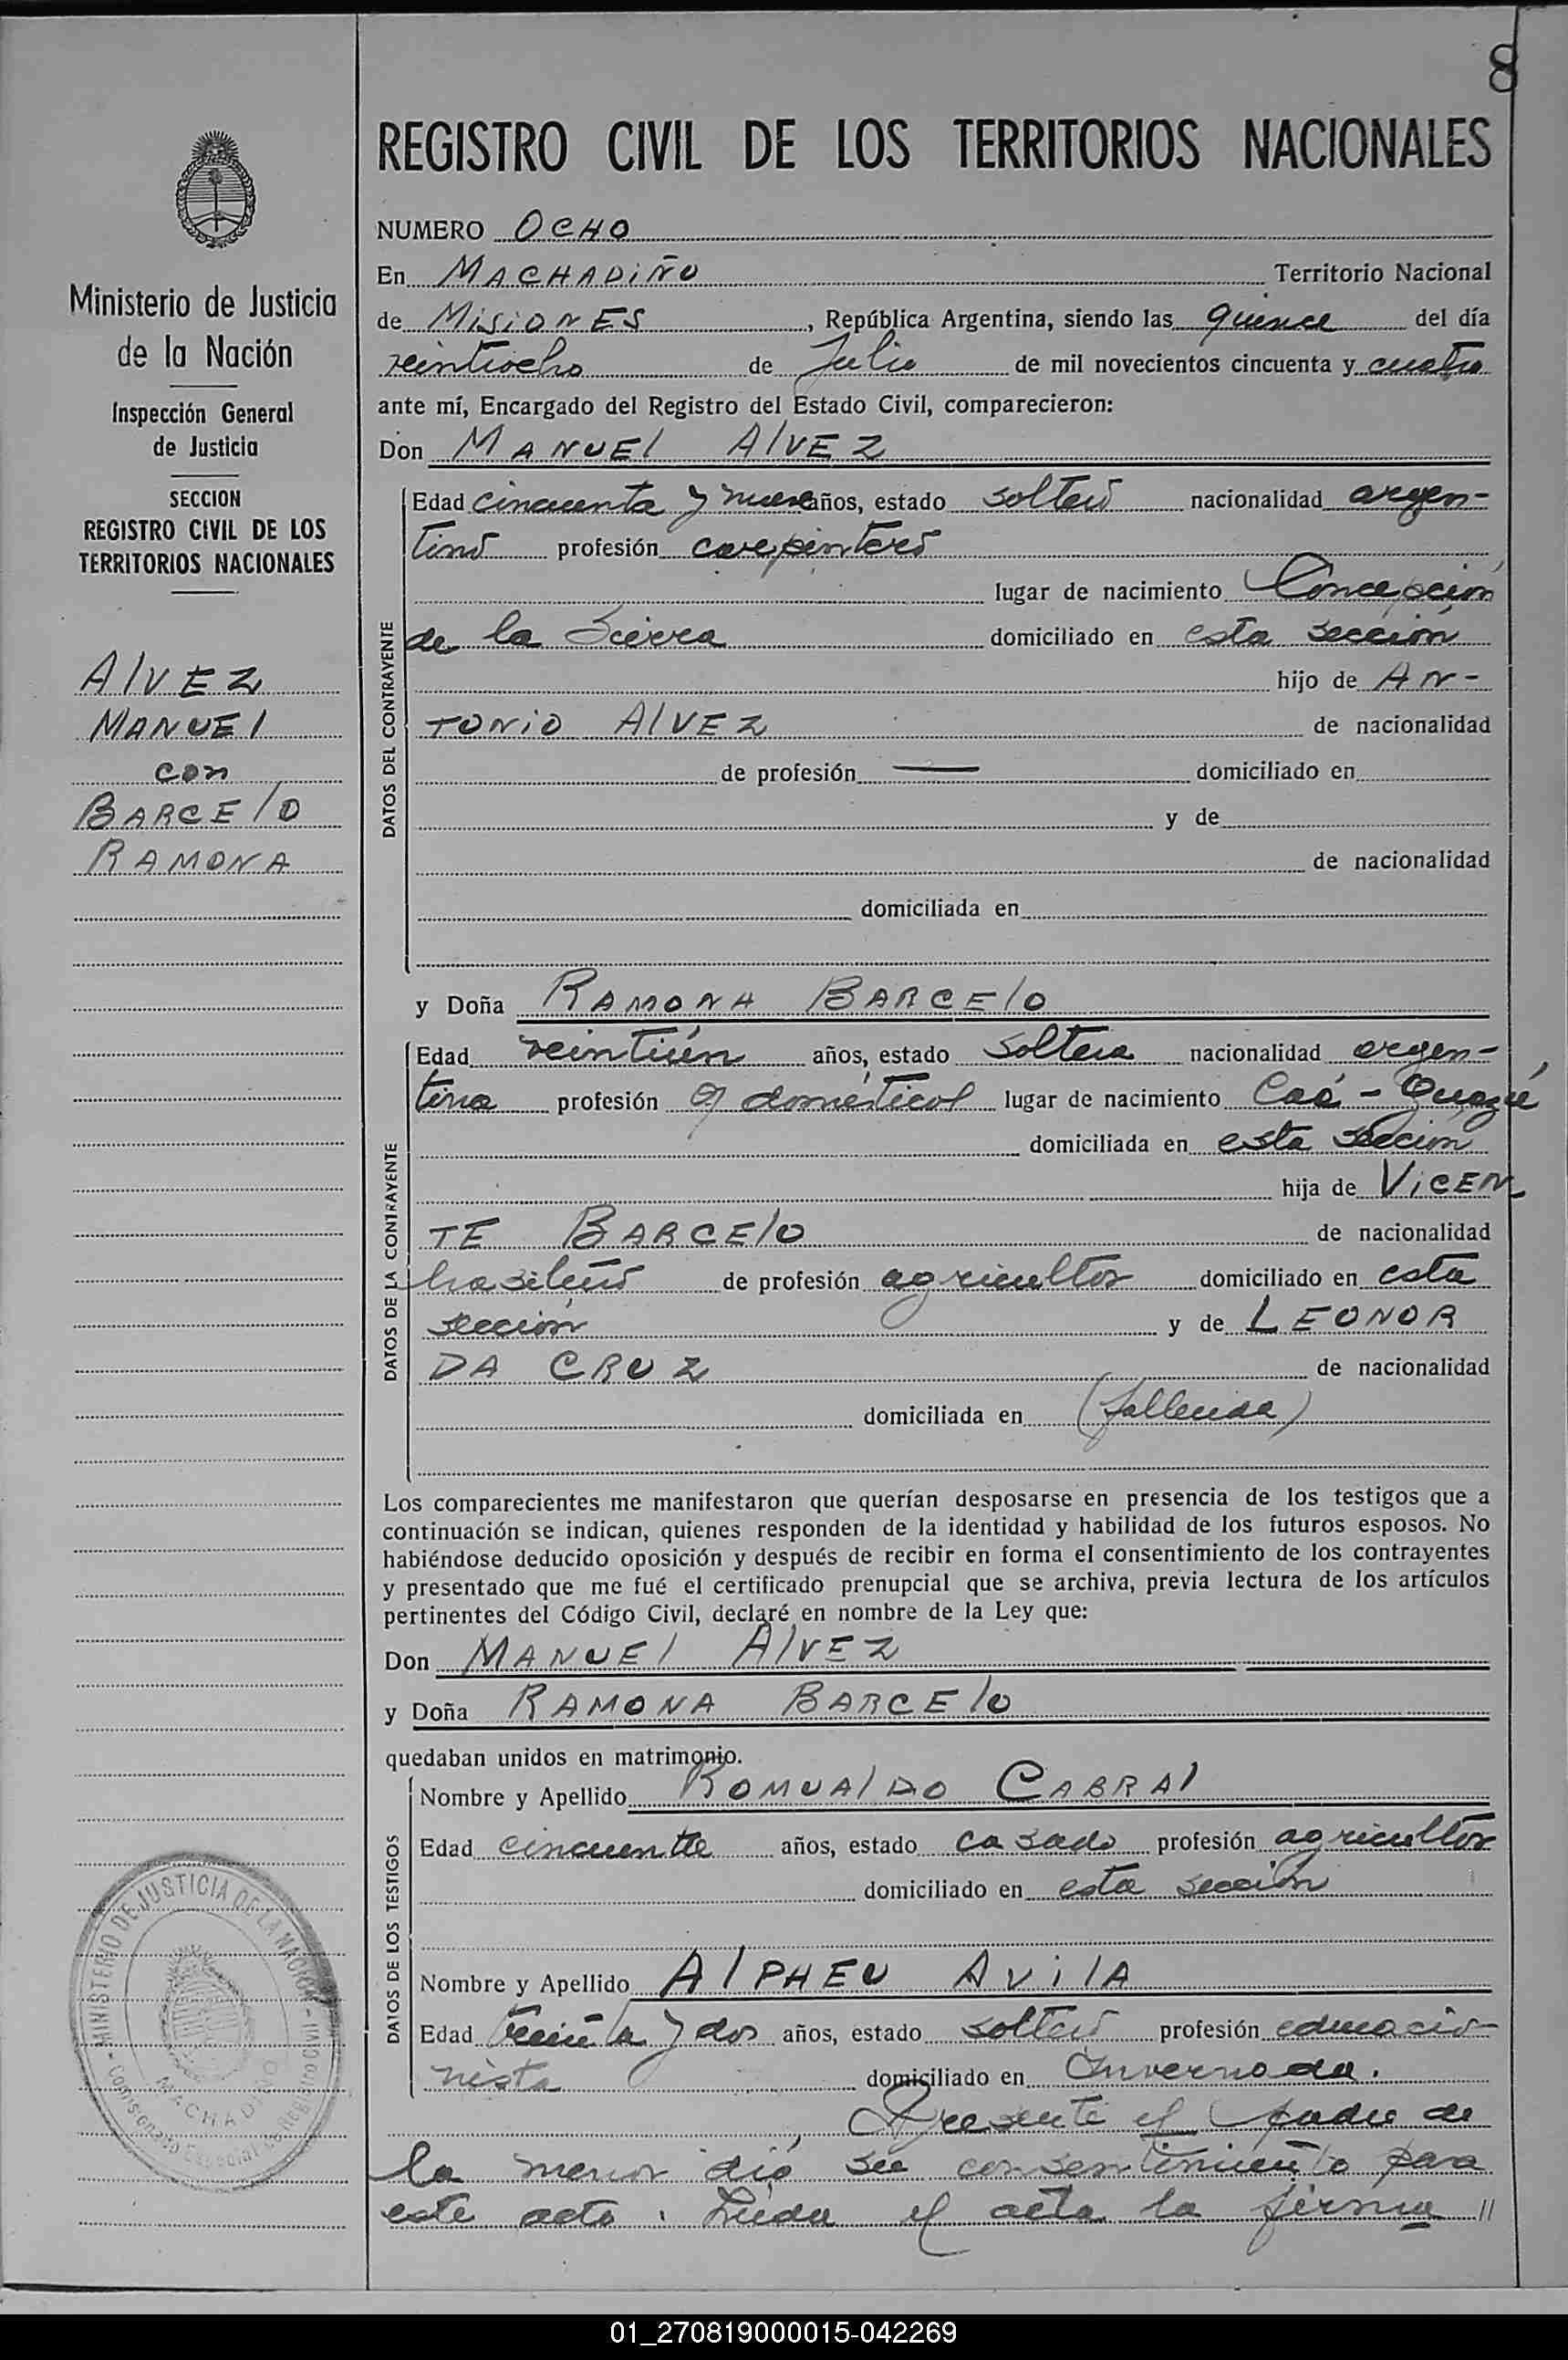 8
REGISTRO CIVIL DE LOS TERRITORIOS NACIONALES
Ministerio de Justicia
de la Nación
Inspección General
de Justicia
SECCION
REGISTRO CIVIL DE LOS
TERRITORIOS NACIONALES
AlVEZ
MANUEl
con
BARCElO
RAMONA
NUMERO OCHO
En MACHADIÑO Territorio Nacional
de MISIONES, República Argentina, siendo las quince del día
veintiocho de Julio de mil novecientos cincuenta y cuatro
ante mí, Encargado del Registro del Estado Civil, comparecieron:
Don MANUEl AlVEZ
DATOS DEL CONTRAYENTE
Edad cincuenta y nueve años, estado soltero nacionalidad argen-
tino profesión carpintero
lugar de nacimiento Concepción
de la Sierra domiciliado en esta sección
hijo de AN-
TONIO AlVEZ de nacionalidad
de profesión — domiciliado en
y de
de nacionalidad
domiciliada en
y Doña RAMONA BARCElO
DATOS DE LA CONTRAYENTE
Edad veintiún años, estado soltera nacionalidad argen-
tina profesión q domésticos lugar de nacimiento Caá-Guazú
domiciliada en esta sección
hija de VICEN
TE BARCElO de nacionalidad
brasileño de profesión agricultor domiciliado en esta
sección y de LEONOR
DA CRUZ de nacionalidad
domiciliada en (fallecida)
Los comparecientes me manifestaron que querían desposarse en presencia de los testigos que a
continuación se indican, quienes responden de la identidad y habilidad de los futuros esposos. No
habiéndose deducido oposición y después de recibir en forma el consentimiento de los contrayentes
y presentado que me fué el certificado prenupcial que se archiva, previa lectura de los artículos
pertinentes del Código Civil, declaré en nombre de la Ley que:
Don MANUEl AlVEZ
y Doña RAMONA BARCElO
quedaban unidos en matrimonio.
DATOS DE LOS TESTIGOS
Nombre y Apellido ROMUAlDO CABRAl
Edad cincuenta años, estado casado profesión agricultor
domiciliado en esta sección
Nombre y Apellido AlPHEU AVIlA
Edad treinta y dos años, estado soltero profesión educacio-
nista domiciliado en Invernada.
Presente el padre de
la menor dió su consentimiento para
este acto. Leída el acta la firma //
MINISTERIO DE JUSTICIA DE LA NACION
MACHADIÑO
01_270819000015-042269